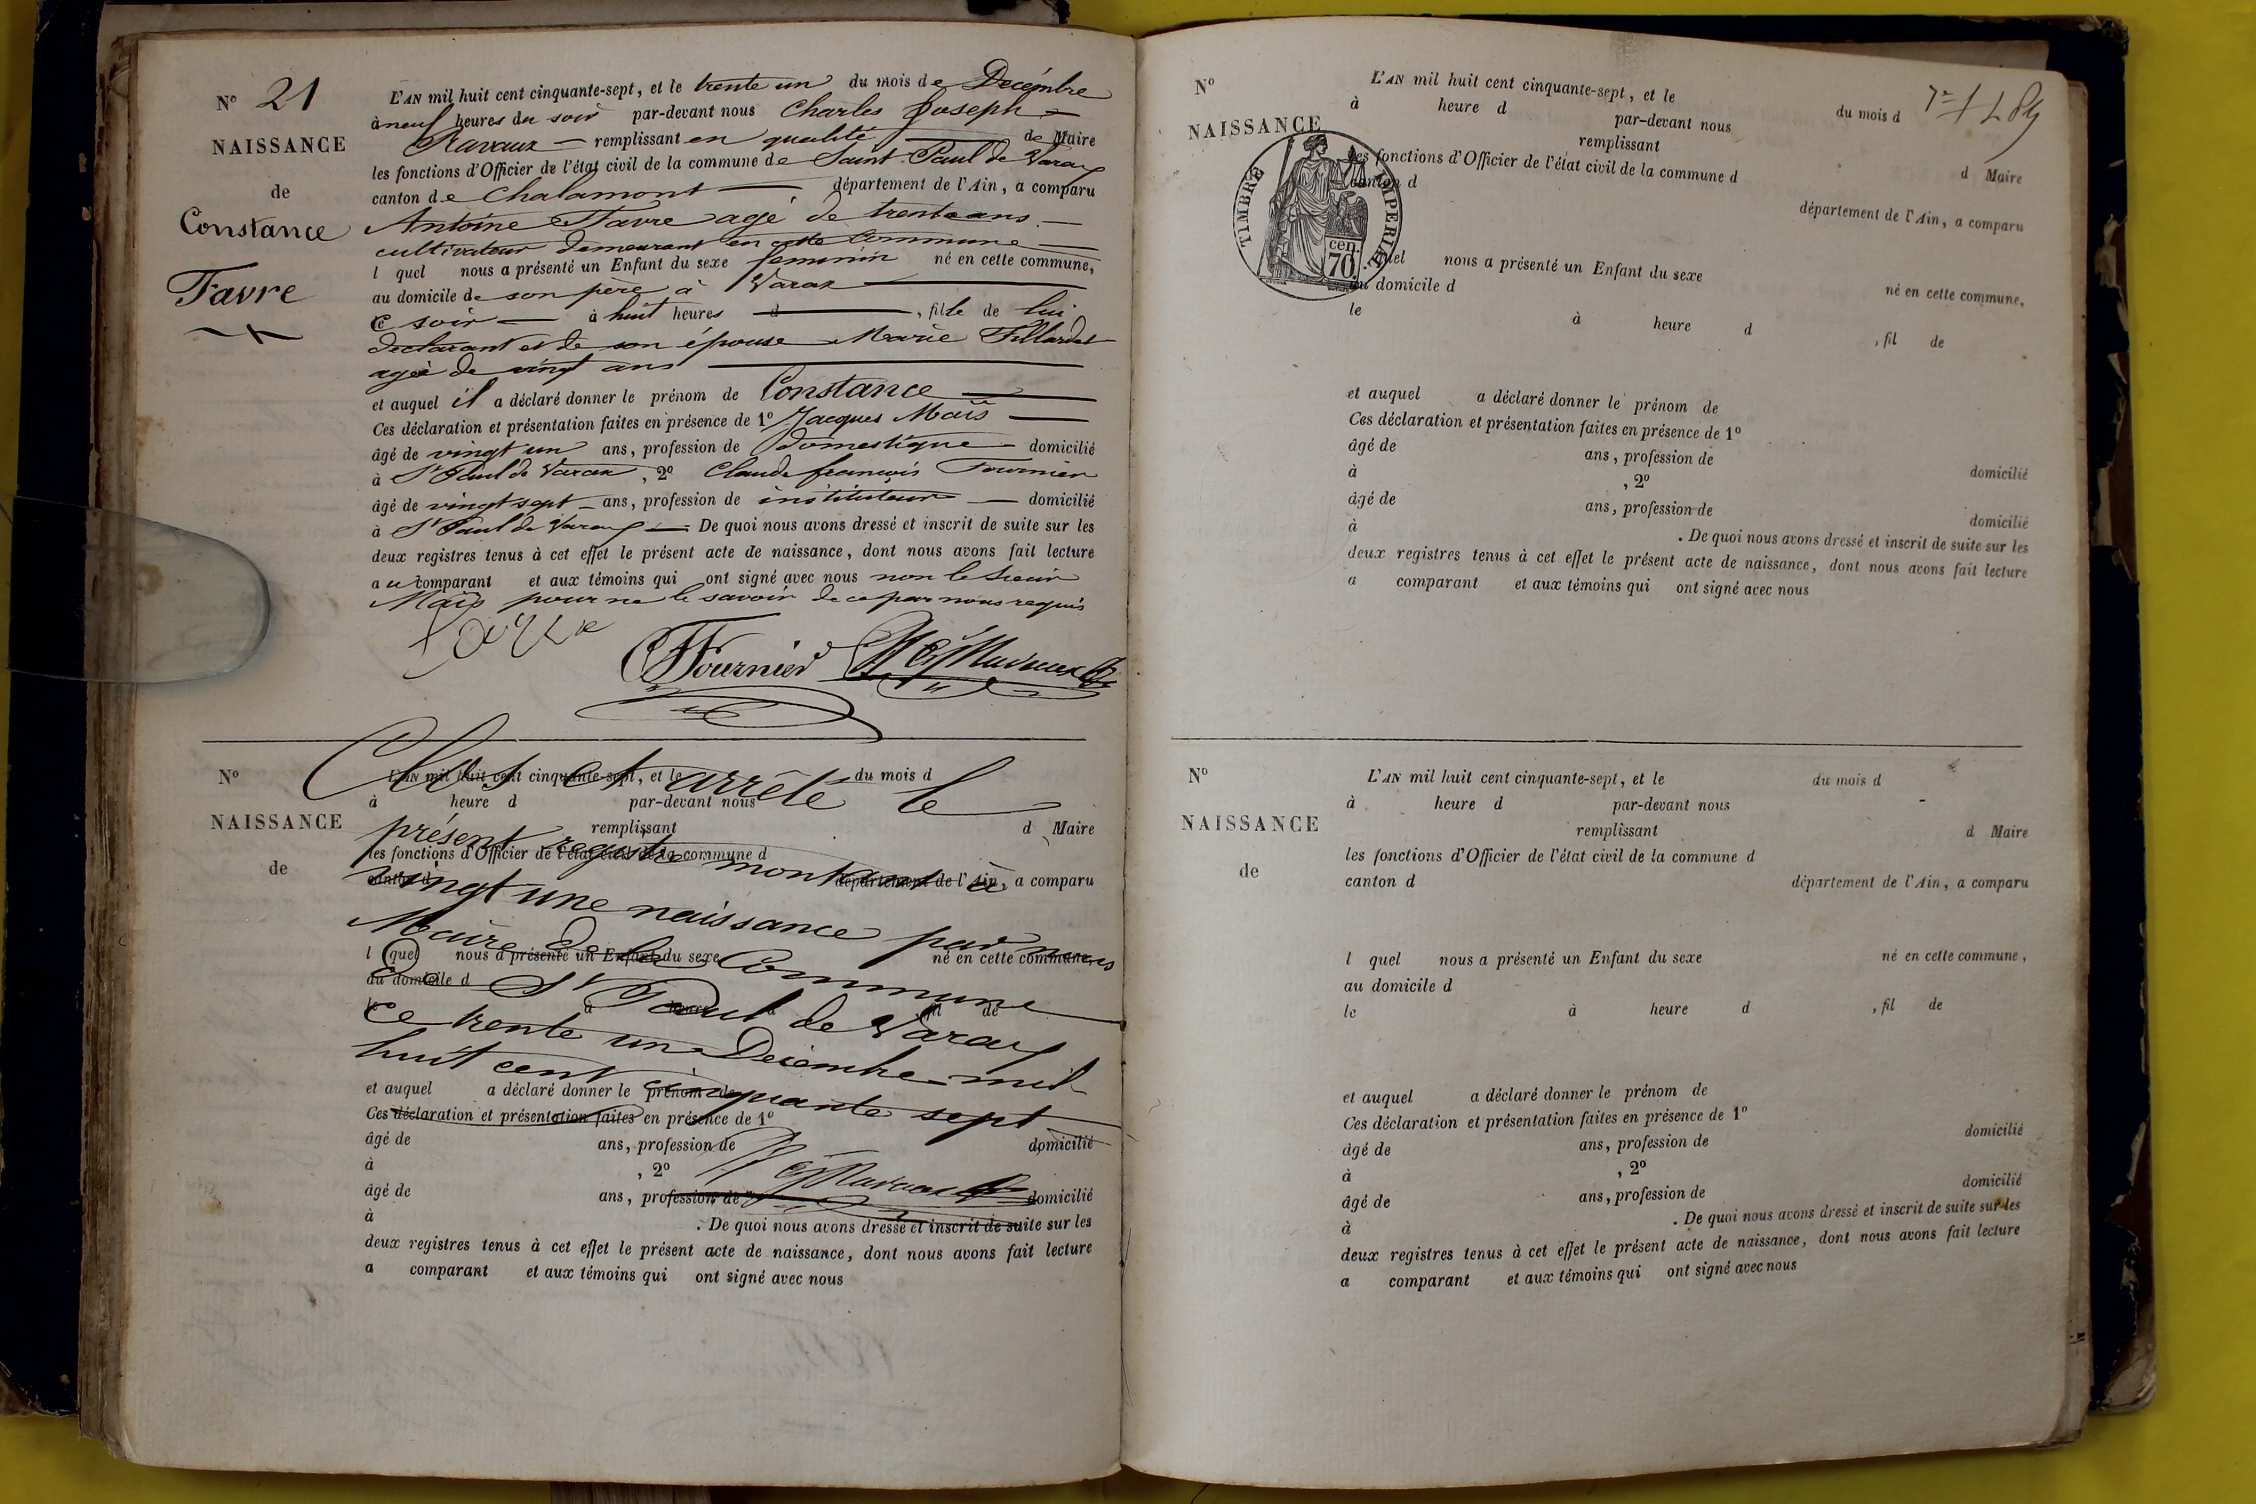 N° 21
NAISSANCE
de
Constance
Favre
L'AN mil huit cent cinquante-sept, et le trente un du mois de Decémbre
à neuf heures du soir par-devant nous Charles Joseph
Ravaux remplissant en qualité de Maire
les fonctions d'Officier de l'état civil de la commune de Saint Paul de Varax
canton de Chalamont département de l'Ain, a comparu
Antoine Favre agé de trente ans
cultivateur demeurant en cette Commune
l quel nous a présenté un Enfant du sexe feminin né en cette commune,
au domicile de son père à Varax
ce soir à huit heures d , fille de lui
declarant et de son épouse Marie Fillardet
agée de vingt ans
et auquel il a déclaré donner le prénom de Constance
Ces déclaration et présentation faites en présence de 1° Jacques Maïs
âgé de vingt un ans, profession de domestique domicilié
à St Paul de Varax , 2° Claude françois Fournier
âgé de vingt sept ans, profession de instituteur domicilié
à St Paul de Varax . De quoi nous avons dressé et inscrit de suite sur les
deux registres tenus à cet effet le présent acte de naissance, dont nous avons fait lecture
a u comparant et aux témoins qui ont signé avec nous non le Sieur
Maïs pour ne le savoir de ce par nous requis
favre
Fournier Ravaux
N°
NAISSANCE
de
L'AN mil huit cent cinquante-sept, et le du mois d
à heure d par-devant nous
remplissant d Maire
les fonctions d'Officier de l'état civil de la commune d
canton d département de l'Ain, a comparu
l quel nous a présenté un Enfant du sexe né en cette commune,
au domicile d
le à heure d , fil de
et auquel a déclaré donner le prénom de
Ces déclaration et présentation faites en présence de 1°
âgé de ans, profession de domicilié
à , 2°
âgé de ans, profession de domicilié
à . De quoi nous avons dressé et inscrit de suite sur les
deux registres tenus à cet effet le présent acte de naissance, dont nous avons fait lecture
a comparant et aux témoins qui ont signé avec nous
Clos et arrêté le
présent registre montant à
vingt une naissance par nous
Maire de la Commune
de St Paul de Varax
ce trente un Decembre mil
huit cent cinquante sept
Ravaux
N°
NAISSANCE
TIMBRE IMPERIAL
cen.
70.
L'AN mil huit cent cinquante-sept, et le du mois d
à heure d par-devant nous
remplissant d Maire
les fonctions d'Officier de l'état civil de la commune d
canton d département de l'Ain, a comparu
quel nous a présenté un Enfant du sexe né en cette commune,
au domicile d
le à heure d , fil de
et auquel a déclaré donner le prénom de
Ces déclaration et présentation faites en présence de 1°
âgé de ans, profession de domicilié
à , 2°
âgé de ans, profession de domicilié
à . De quoi nous avons dressé et inscrit de suite sur les
deux registres tenus à cet effet le présent acte de naissance, dont nous avons fait lecture
a comparant et aux témoins qui ont signé avec nous
N°
NAISSANCE
de
L'AN mil huit cent cinquante-sept, et le du mois d
à heure d par-devant nous
remplissant d Maire
les fonctions d'Officier de l'état civil de la commune d
canton d département de l'Ain, a comparu
l quel nous a présenté un Enfant du sexe né en cette commune,
au domicile d
le à heure d , fil de
et auquel a déclaré donner le prénom de
Ces déclaration et présentation faites en présence de 1°
âgé de ans, profession de domicilié
à , 2°
âgé de ans, profession de domicilié
à . De quoi nous avons dressé et inscrit de suite sur les
deux registres tenus à cet effet le présent acte de naissance, dont nous avons fait lecture
a comparant et aux témoins qui ont signé avec nous